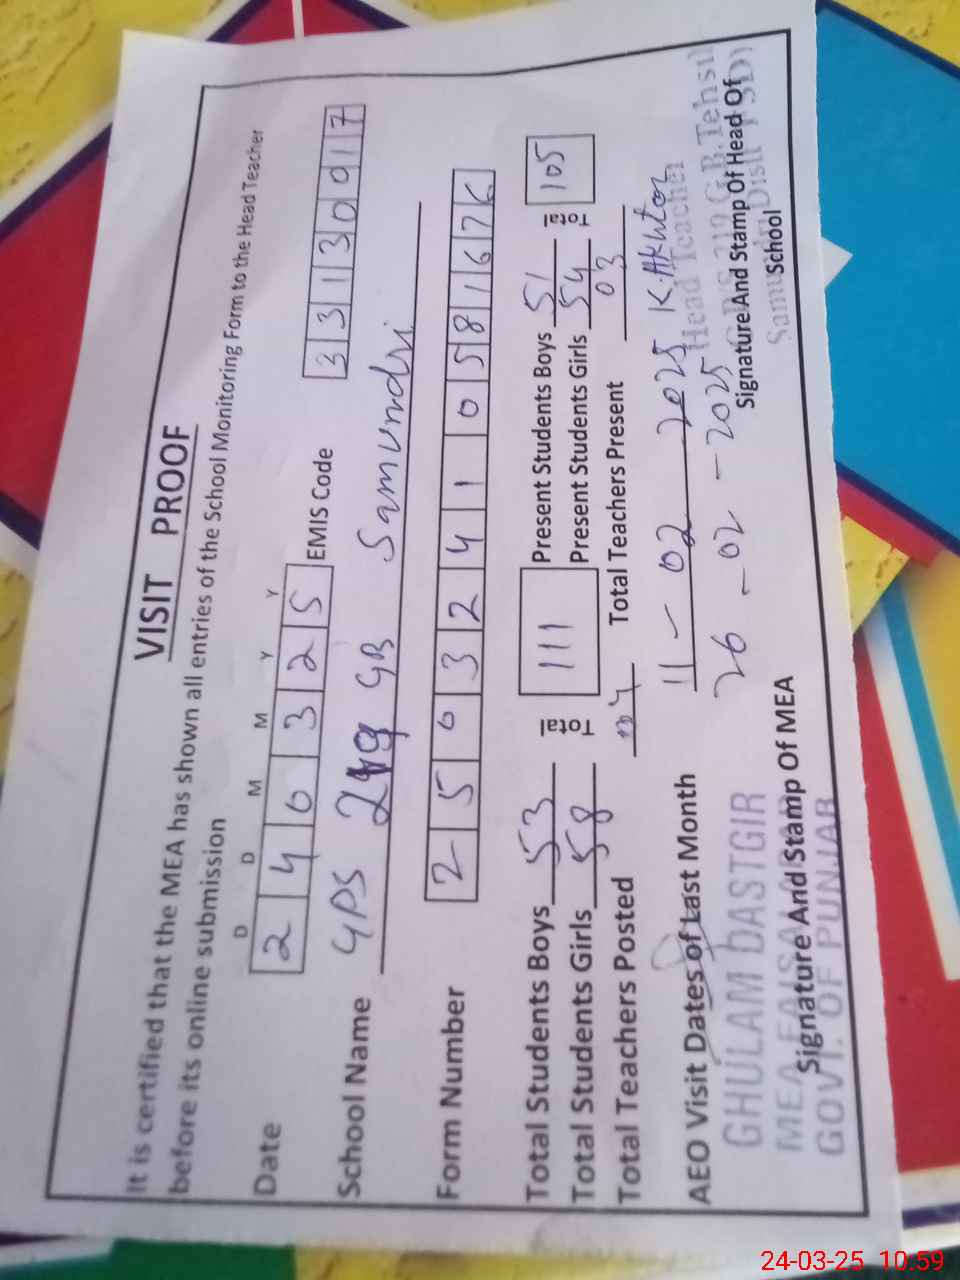 VISIT PROOF
It is certified that the MEA has shown all entries of the School Monitoring Form to the Head Teacher
before its online submission
D D M M Y Y
Date 2 4 0 3 2 5 EMIS Code 3 3 1 3 0 9 1 7
School Name GPS 219 GB Samundri
Form Number 2 5 0 3 2 4 1 0 5 8 1 6 7 6
Total Students Boys 53 Total 111 Present Students Boys 51 Total 105
Total Students Girls 58 Present Students Girls 54
Total Teachers Posted Total Teachers Present 03
AEO Visit Dates of Last Month 11-02-2025 K.Akhtar
26-02-2025 Head Teacher
GHULAM DASTGIR G.P.S 219 G.B. Tehsil
Signature And Stamp Of MEA Signature And Stamp Of Head Of
School
MEA FAISALABAD Samundri Distt
GOVT. OF PUNJAB
24-03-25 10:59